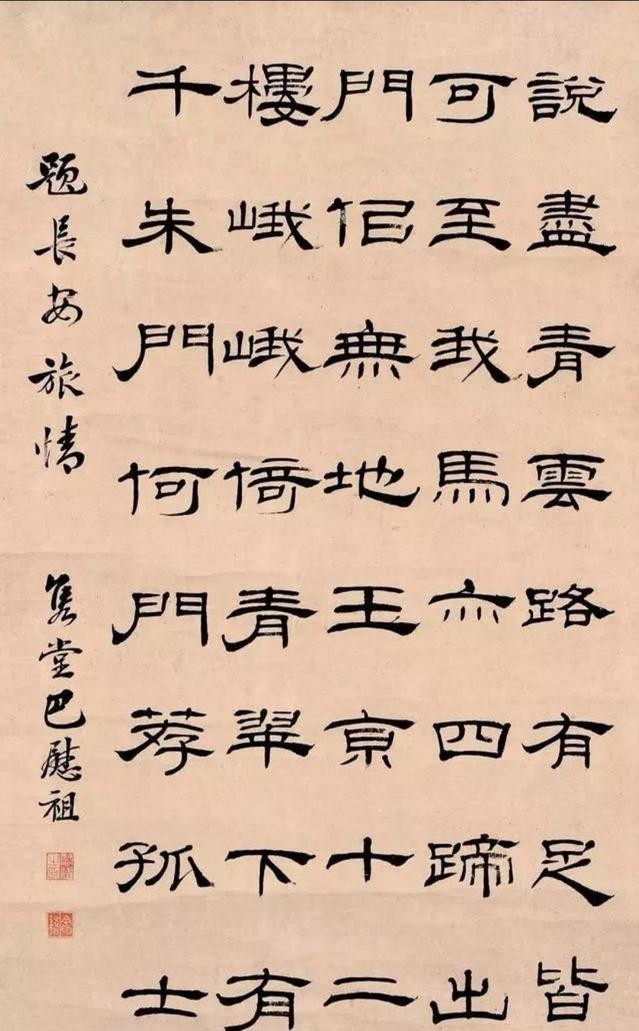 說盡青雲路有足皆
可至我馬亦四蹄出
門佀無地玉亰十二
樓峨峨倚青翠下有
千朱門何門荐孤士
題長安旅情 雋堂巴慰祖